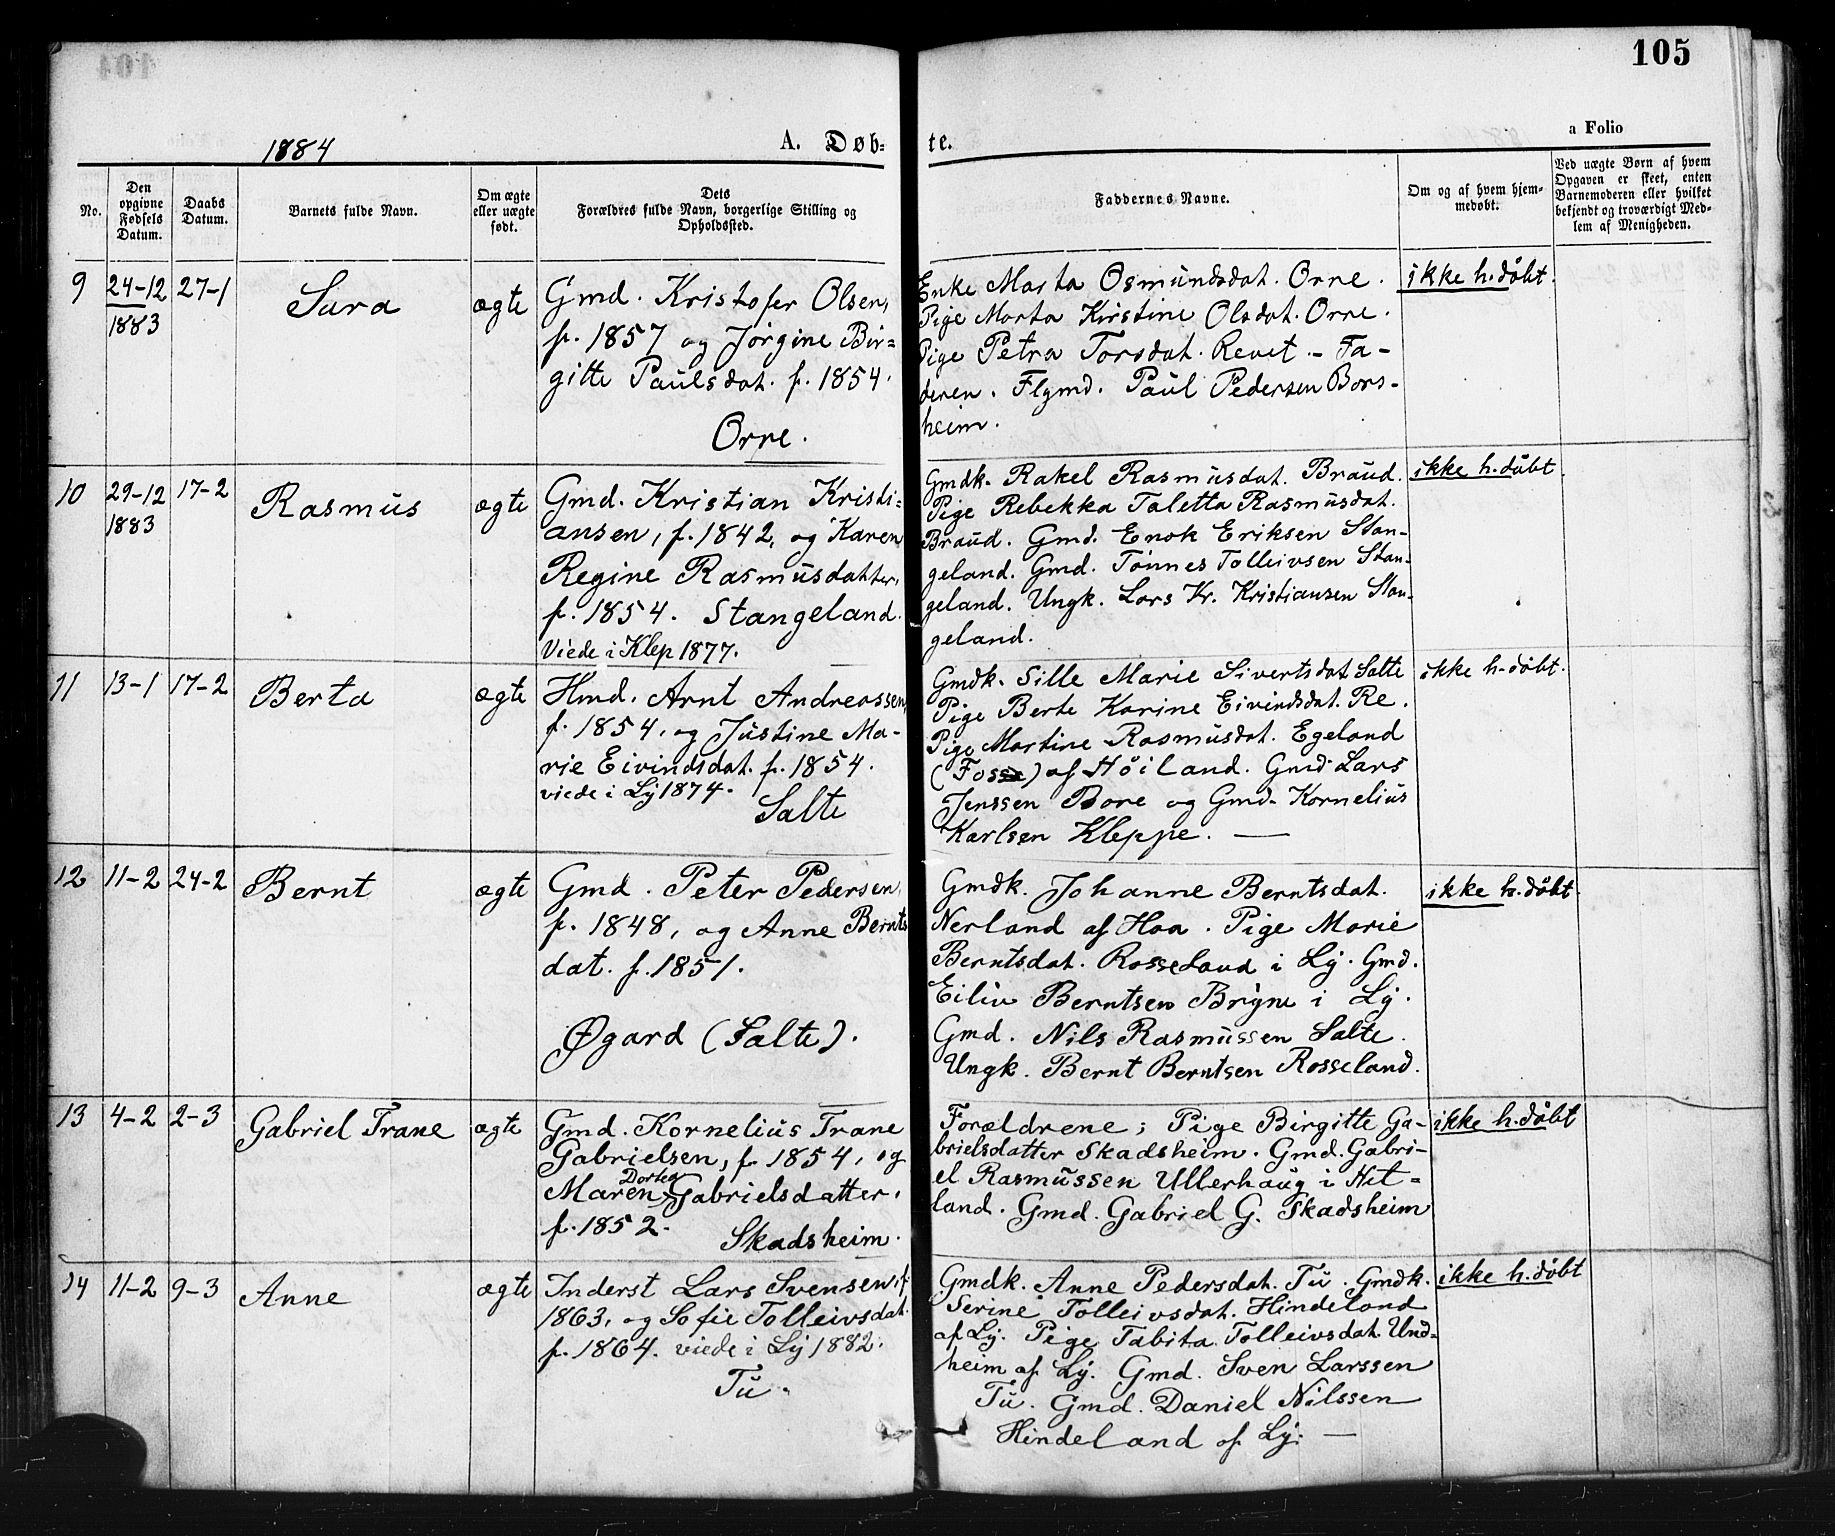 105
1884
A. Døb-
te.
a Folio
No.
Den
opgivne
Fødsels
Datum.
Daabs
Datum.
Barnets fulde Navn.
Om ægte
eller uægte
født.
Dets
Forældres fulde Navn, borgerlige Stilling og
Opholdssted.
Faddernes Navne.
Om og af hvem hjem-
medøbt.
Ved uægte Børn af hvem
Opgaven er skeet, enten
Barnemoderen eller hvilket
bekjendt og troværdigt Med-
lem af Menigheden.
9
24-12
1883
27-1
Sara
ægte
Gmd. Kristofer Olsen,
f. 1857 og Jörgine Bir=
gitte Paulsdat. f. 1854.
Orre.
Enke Marta Osmundsdat. Orre.
Pige Marta Kirstine Olsdat. Orre.
Pige Petra Torsdat. Revet. - Fa-
deren. Flgmd. Paul Pedersen Bors-
heim.
ikke h. döbt.
10
29-12
1883
17-2
Rasmus
ægte
Gmd. Kristian Kristi=
ansen, f. 1842, og Karen
Regine Rasmusdatter,
f. 1854. Stangeland.
Viede i Klep 1877.
Gmdk. Rakel Rasmusdat. Braud.
Pige Rebekka Taletta Rasmusdat.
Braud. Gmd. Enok Eriksen Stan-
geland. Gmd. Tönnes Tolleivsen Stan-
geland. Ungk. Lars Kr. Kristiansen Stan-
geland.
ikke h. döbt.
11
13-1
17-2
Berta
ægte
Hmd. Arnt Andreassen,
f. 1854, og Justine Ma-
rie Eivindsdat. f. 1854.
viede i Ly 1874.
Salte
Gmdk. Sille Marie Sivertsdat. Salte
Pige Berte Karine Eivindsdat. Re.
Pige Martine Rasmusdat. Egeland
(Fosse) af Höiland. Gmd. Lars
Jenssen Bore og Gmd. Kornelius
Karlsen Kleppe. —
ikke h. döbt.
12
11-2
24-2
Bernt
ægte
Gmd. Peter Pedersen,
f. 1848, og Anne Bernts
dat. f. 1851.
Øgard (Salte).
Gmdk. Johanne Berntsdat.
Nerland af Haa. Pige Marie
Berntsdat. Rosseland i Ly. Gmd.
Eiliv Berntsen Bryne i Ly.
Gmd. Nils Rasmussen Salte.
Ungk. Bernt Berntsen Rosseland.
ikke h. döbt.
13
4-2
2-3
Gabriel Trane
ægte
Gmd. Kornelius Trane
Gabrielsen, f. 1854, og
Dortea
Maren Gabrielsdatter,
f. 1852. Skadsheim.
Forældrene; Pige Birgitte Ga-
brielsdatter Skadsheim. Gmd. Gabri-
el Rasmussen Ullerhaug i Het-
land. Gmd. Gabriel G. Skadsheim
ikke h. döbt
14
11-2
9-3
Anne
ægte
Inderst Lars Svensen, f.
1863, og Sofie Tolleivsdat.
f. 1864. viede i Ly 1882.
Tu.
Gmdk. Anne Pedersdat. Tu. Gmdk.
Serine Tolleivsdat. Hindeland
af Ly. Pige Tabita Tolleivsdat. Und=
heim af Ly. Gmd. Sven Larssen
Tu. Gmd. Daniel Nilssen
Hindeland af Ly. —
ikke h. döbt